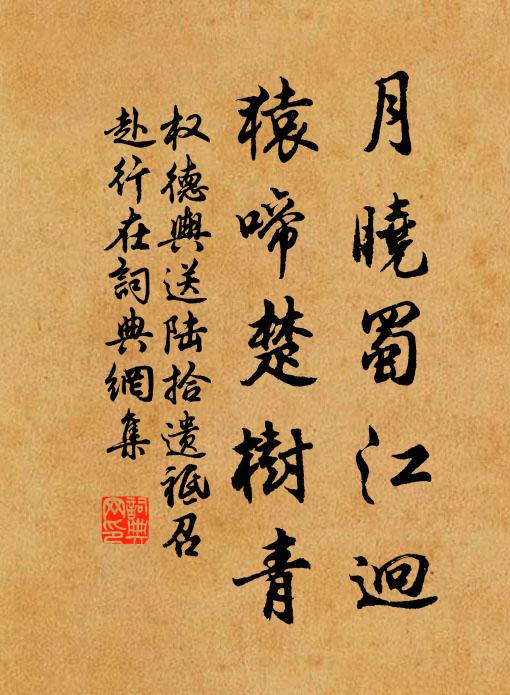 月曉蜀江迥
猿啼楚樹青
权德輿送陆拾遗祗召
赴行在詞典網集
詞典
网印